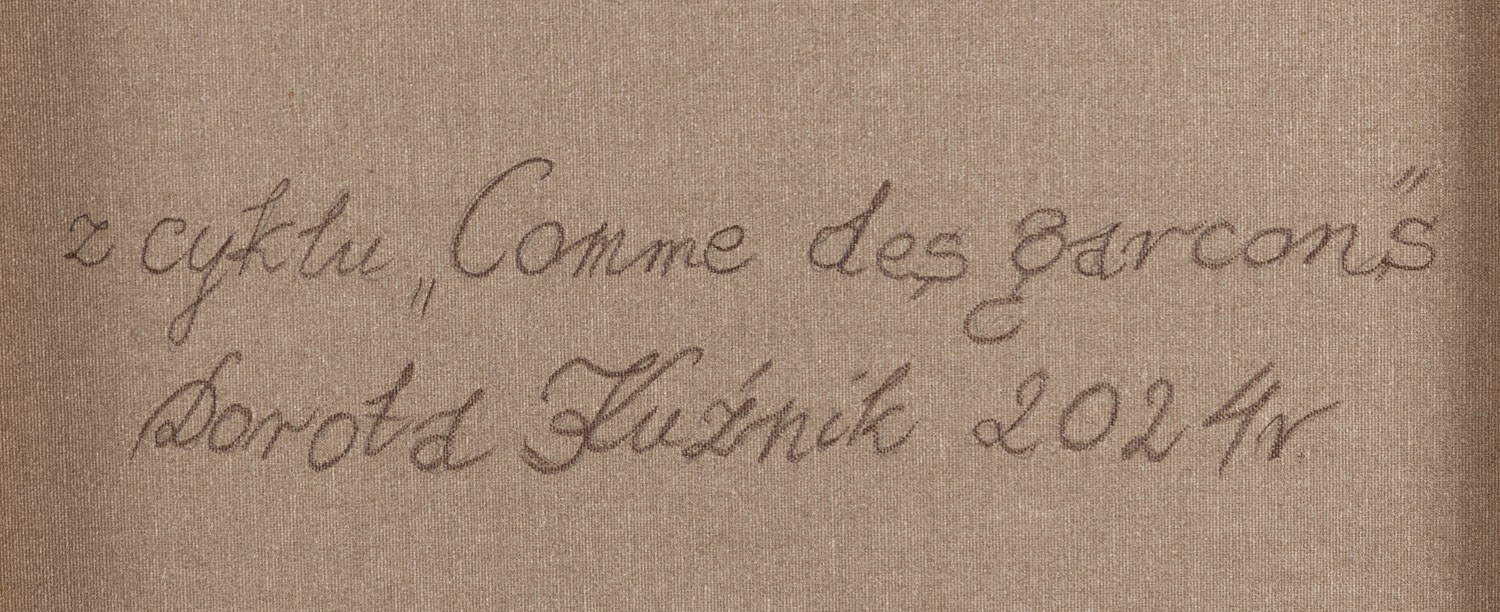 z cyklu „Comme des garcons"
Dorota Kuźnik 2024r.